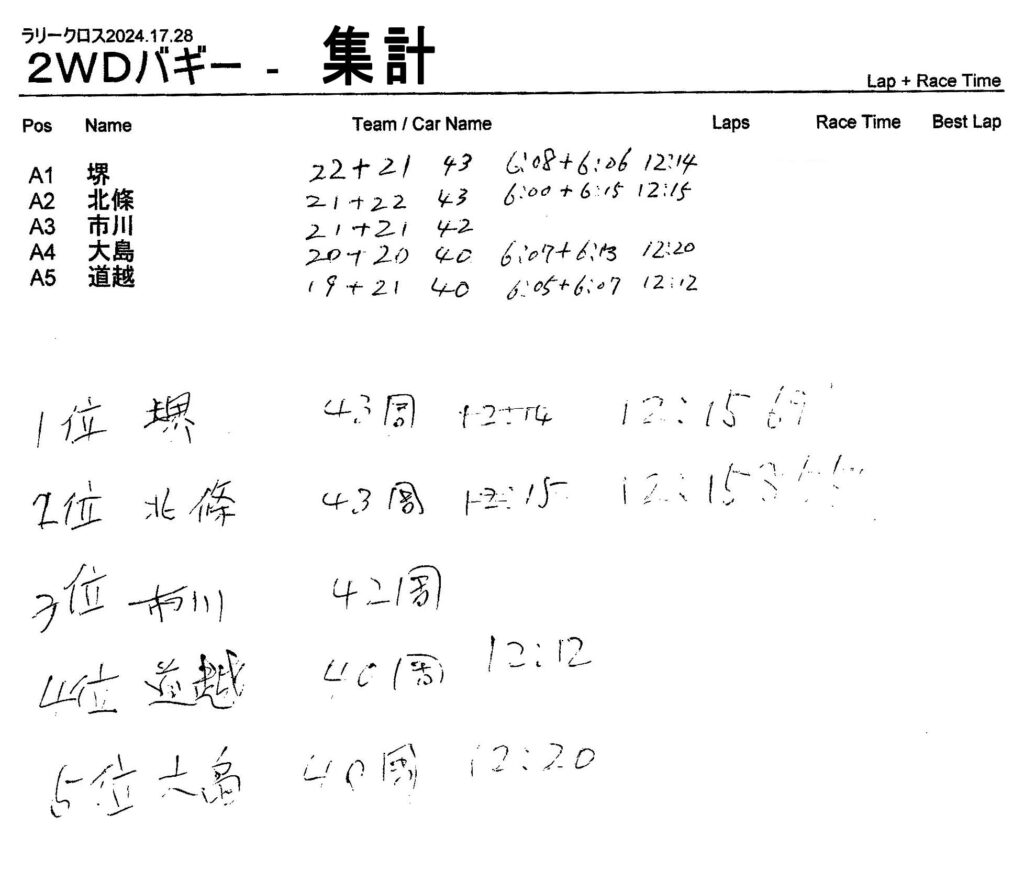 ラリークロス2024.17.28
2WDバギー - 集計
Lap + Race Time
Pos Name Team / Car Name Laps Race Time Best Lap
A1 堺 22+21 43 6:08+6:06 12:14
A2 北條 21+22 43 6:00+6:15 12:15
A3 市川 21+21 42
A4 大島 20+20 40 6:07+6:13 12:20
A5 道越 19+21 40 6:05+6:07 12:12
1位 堺 43周 12:14 12:15 69
2位 北條 43周 12:15 12:15
3位 市川 42周
4位 道越 40周 12:12
5位 大島 40周 12:20